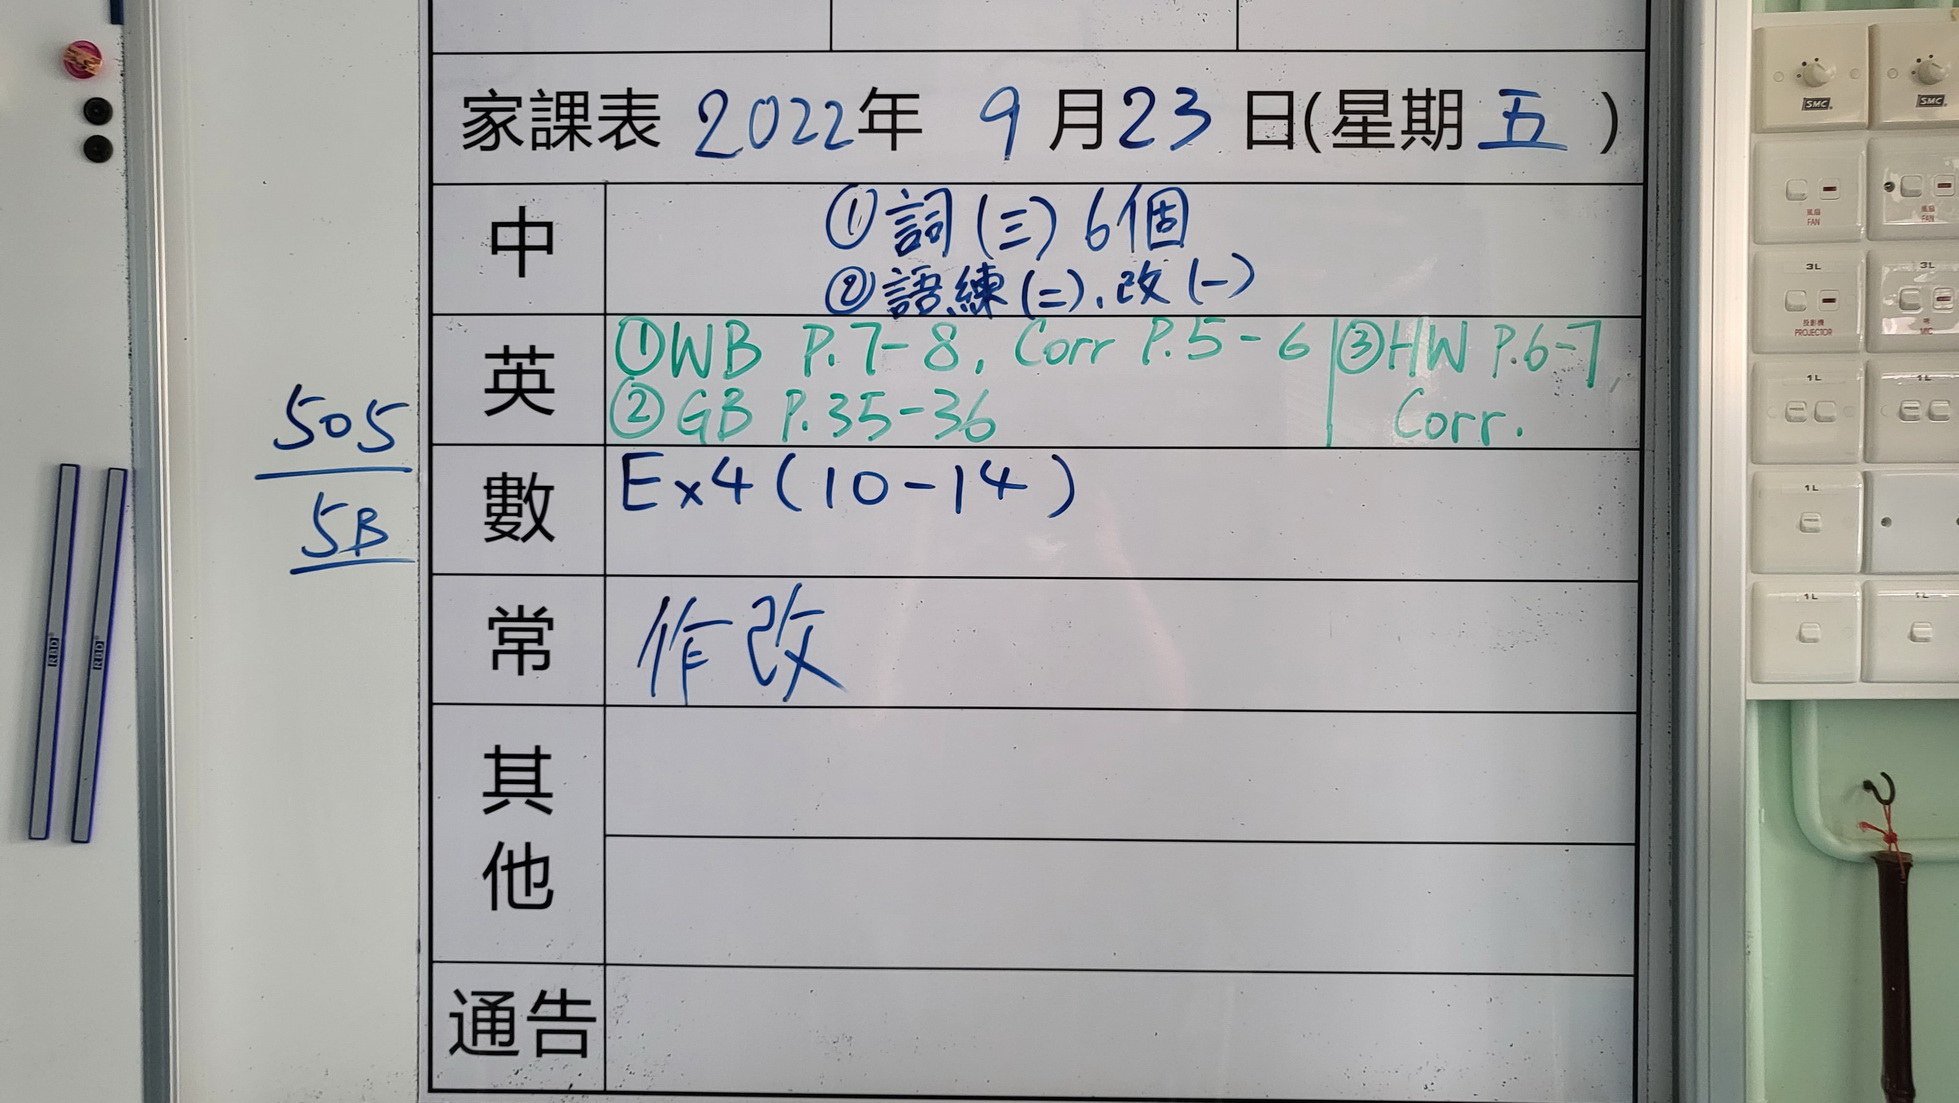 家課表 2022年 9月23日(星期五)
中
①詞(三)6個
②語練(二)、改(一)
英
①WB P.7-8, Corr P.5-6
②GB P.35-36
③HW P.6-7,
Corr.
數
Ex4(10-14)
常
作改
其他
通告
505
5B
RBD
RBD
SMC
SMC
風扇
FAN
風扇
FAN
3L
3L
投影機
PROJECTOR
MIC
1L
1L
1L
1L
1L